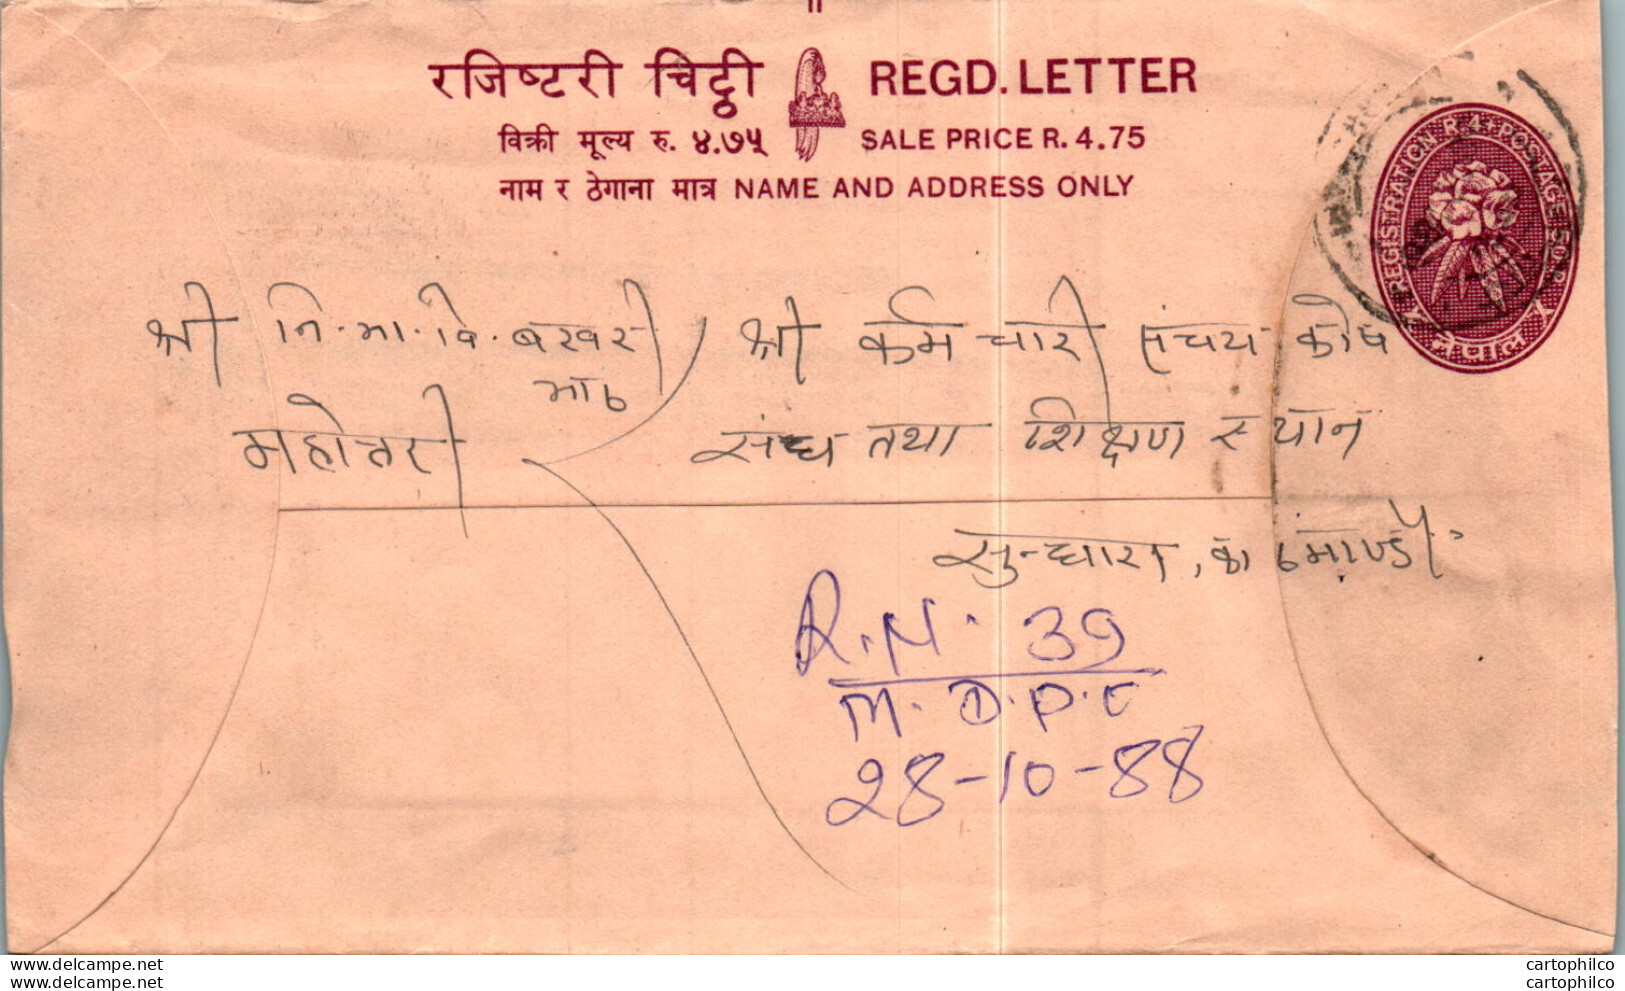 रजिष्टरी चिट्ठी REGD. LETTER
विक्री मूल्य रु. ४.७५ SALE PRICE R. 4.75
नाम र ठेगाना मात्र NAME AND ADDRESS ONLY
REGISTRATION R. 4. POSTAGE 50 P.
नेपाल
श्री नि.मा.वि. बखरी
महोत्तरी
श्री कर्मचारी संचय कोष
संघ तथा शिक्षण स्थान
सुन्धारा, काठमाण्डौ
R.N. 39
M.D.P.O
28-10-88
www.delcampe.net
www.delcampe.net
cartophilco
cartophilco